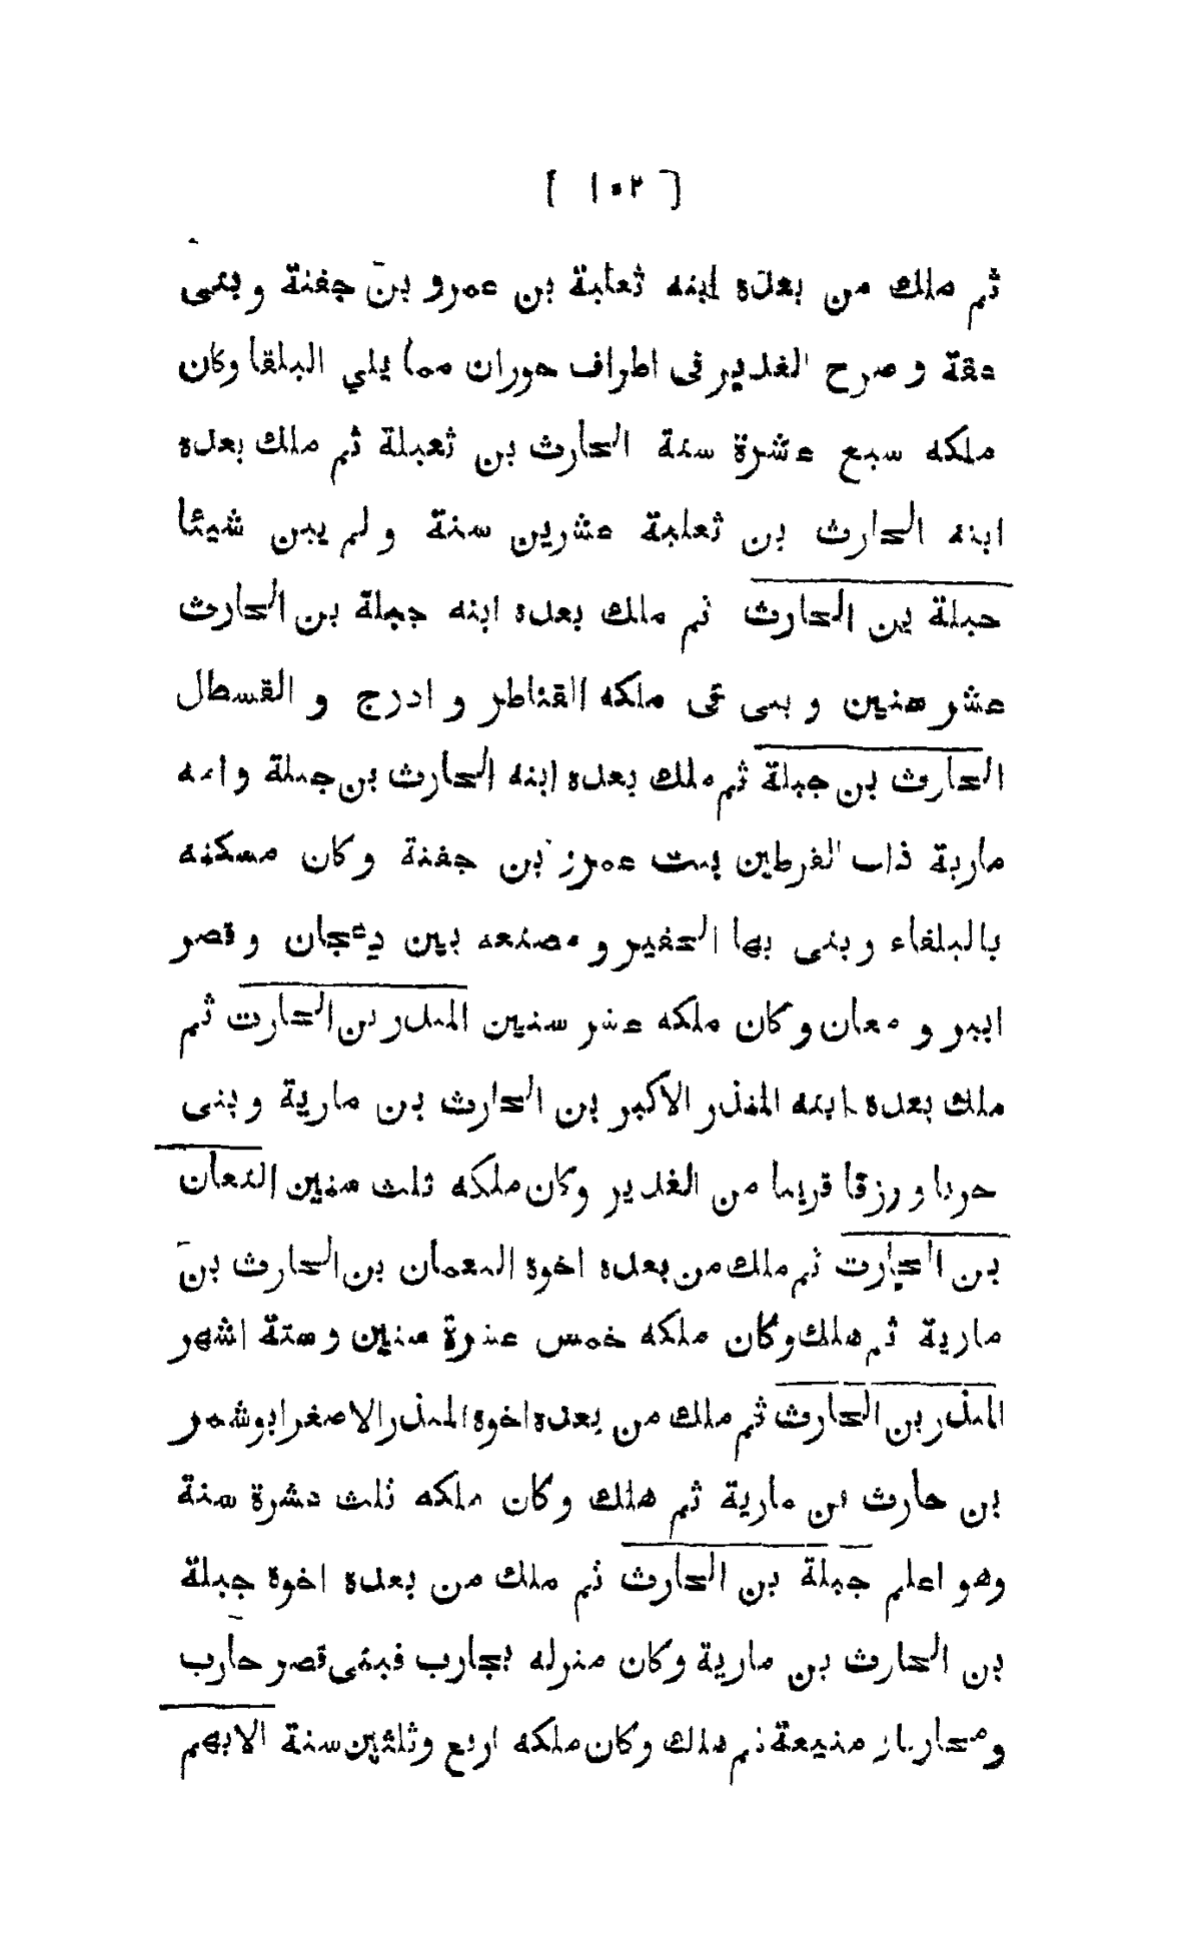 [ ١٠٢ ]
ثم ملك من بعده ابنه ثعلبة بن عمرو بن جفنة و بنى
عقة و صرح الغدير فى اطراف حوران مما يلي البلقا وكان
ملكه سبع عشرة سنة الحارث بن ثعبلة ثم ملك بعده
ابنه الحارث بن ثعلبة عشرين سنة و لم يبن شيئا
جبلة بن الحارث ثم ملك بعده ابنه جبلة بن الحارث
عشر سنين و بنى فى ملكه القناطر و ادرج و القسطل
الحارث بن جبلة ثم ملك بعده ابنه الحارث بن جبلة و امه
مارية ذات القرطين بنت عمرو بن جفنة و كان مسكنه
بالبلقاء و بنى بها الحفير و مصنعه بين دعجان و قصر
ابير و معان و كان ملكه عشر سنين المنذر بن الحارث ثم
ملك بعده ابنه المنذر الاكبر بن الحارث بن مارية و بنى
حربا و رزقا قريبا من الغدير وكان ملكه ثلث سنين النعمان
بن الحارث ثم ملك من بعده اخوة النعمان بن الحارث بن
مارية ثم هلك وكان ملكه خمس عشرة سنين و ستة اشهر
المنذر بن الحارث ثم ملك من بعده اخوة المنذر الاصغر ابو شمر
بن حارث بن مارية ثم هلك وكان ملكه ثلث عشرة سنة
وهو اعلم جبلة بن الحارث ثم ملك من بعده اخوة جبلة
بن الحارث بن مارية وكان منزله بحارب فبنى قصر حارب
و منيعة ثم هلك وكان ملكه اربع وثلثين سنة الايهم